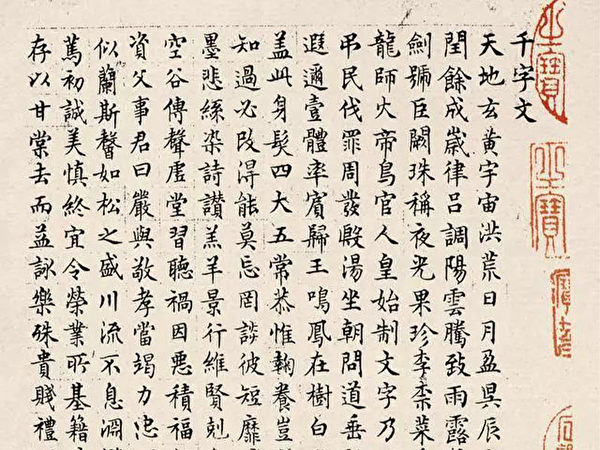 千字文
天地玄黃宇宙洪荒日月盈昃辰
閏餘成歲律呂調陽雲騰致雨露
劍號巨闕珠稱夜光果珍李柰菜
龍師火帝鳥官人皇始制文字乃
弔民伐罪周發殷湯坐朝問道垂
遐邇壹體率賓歸王鳴鳳在樹白
盖此身髮四大五常恭惟鞠養豈
知過必改得能莫忘罔談彼短靡
墨悲絲染詩讚羔羊景行維賢剋
空谷傳聲虛堂習聽禍因惡積福
資父事君曰嚴與敬孝當竭力忠
似蘭斯馨如松之盛川流不息淵
篤初誠美慎終宜令榮業所基籍
存以甘棠去而益詠樂殊貴賤禮